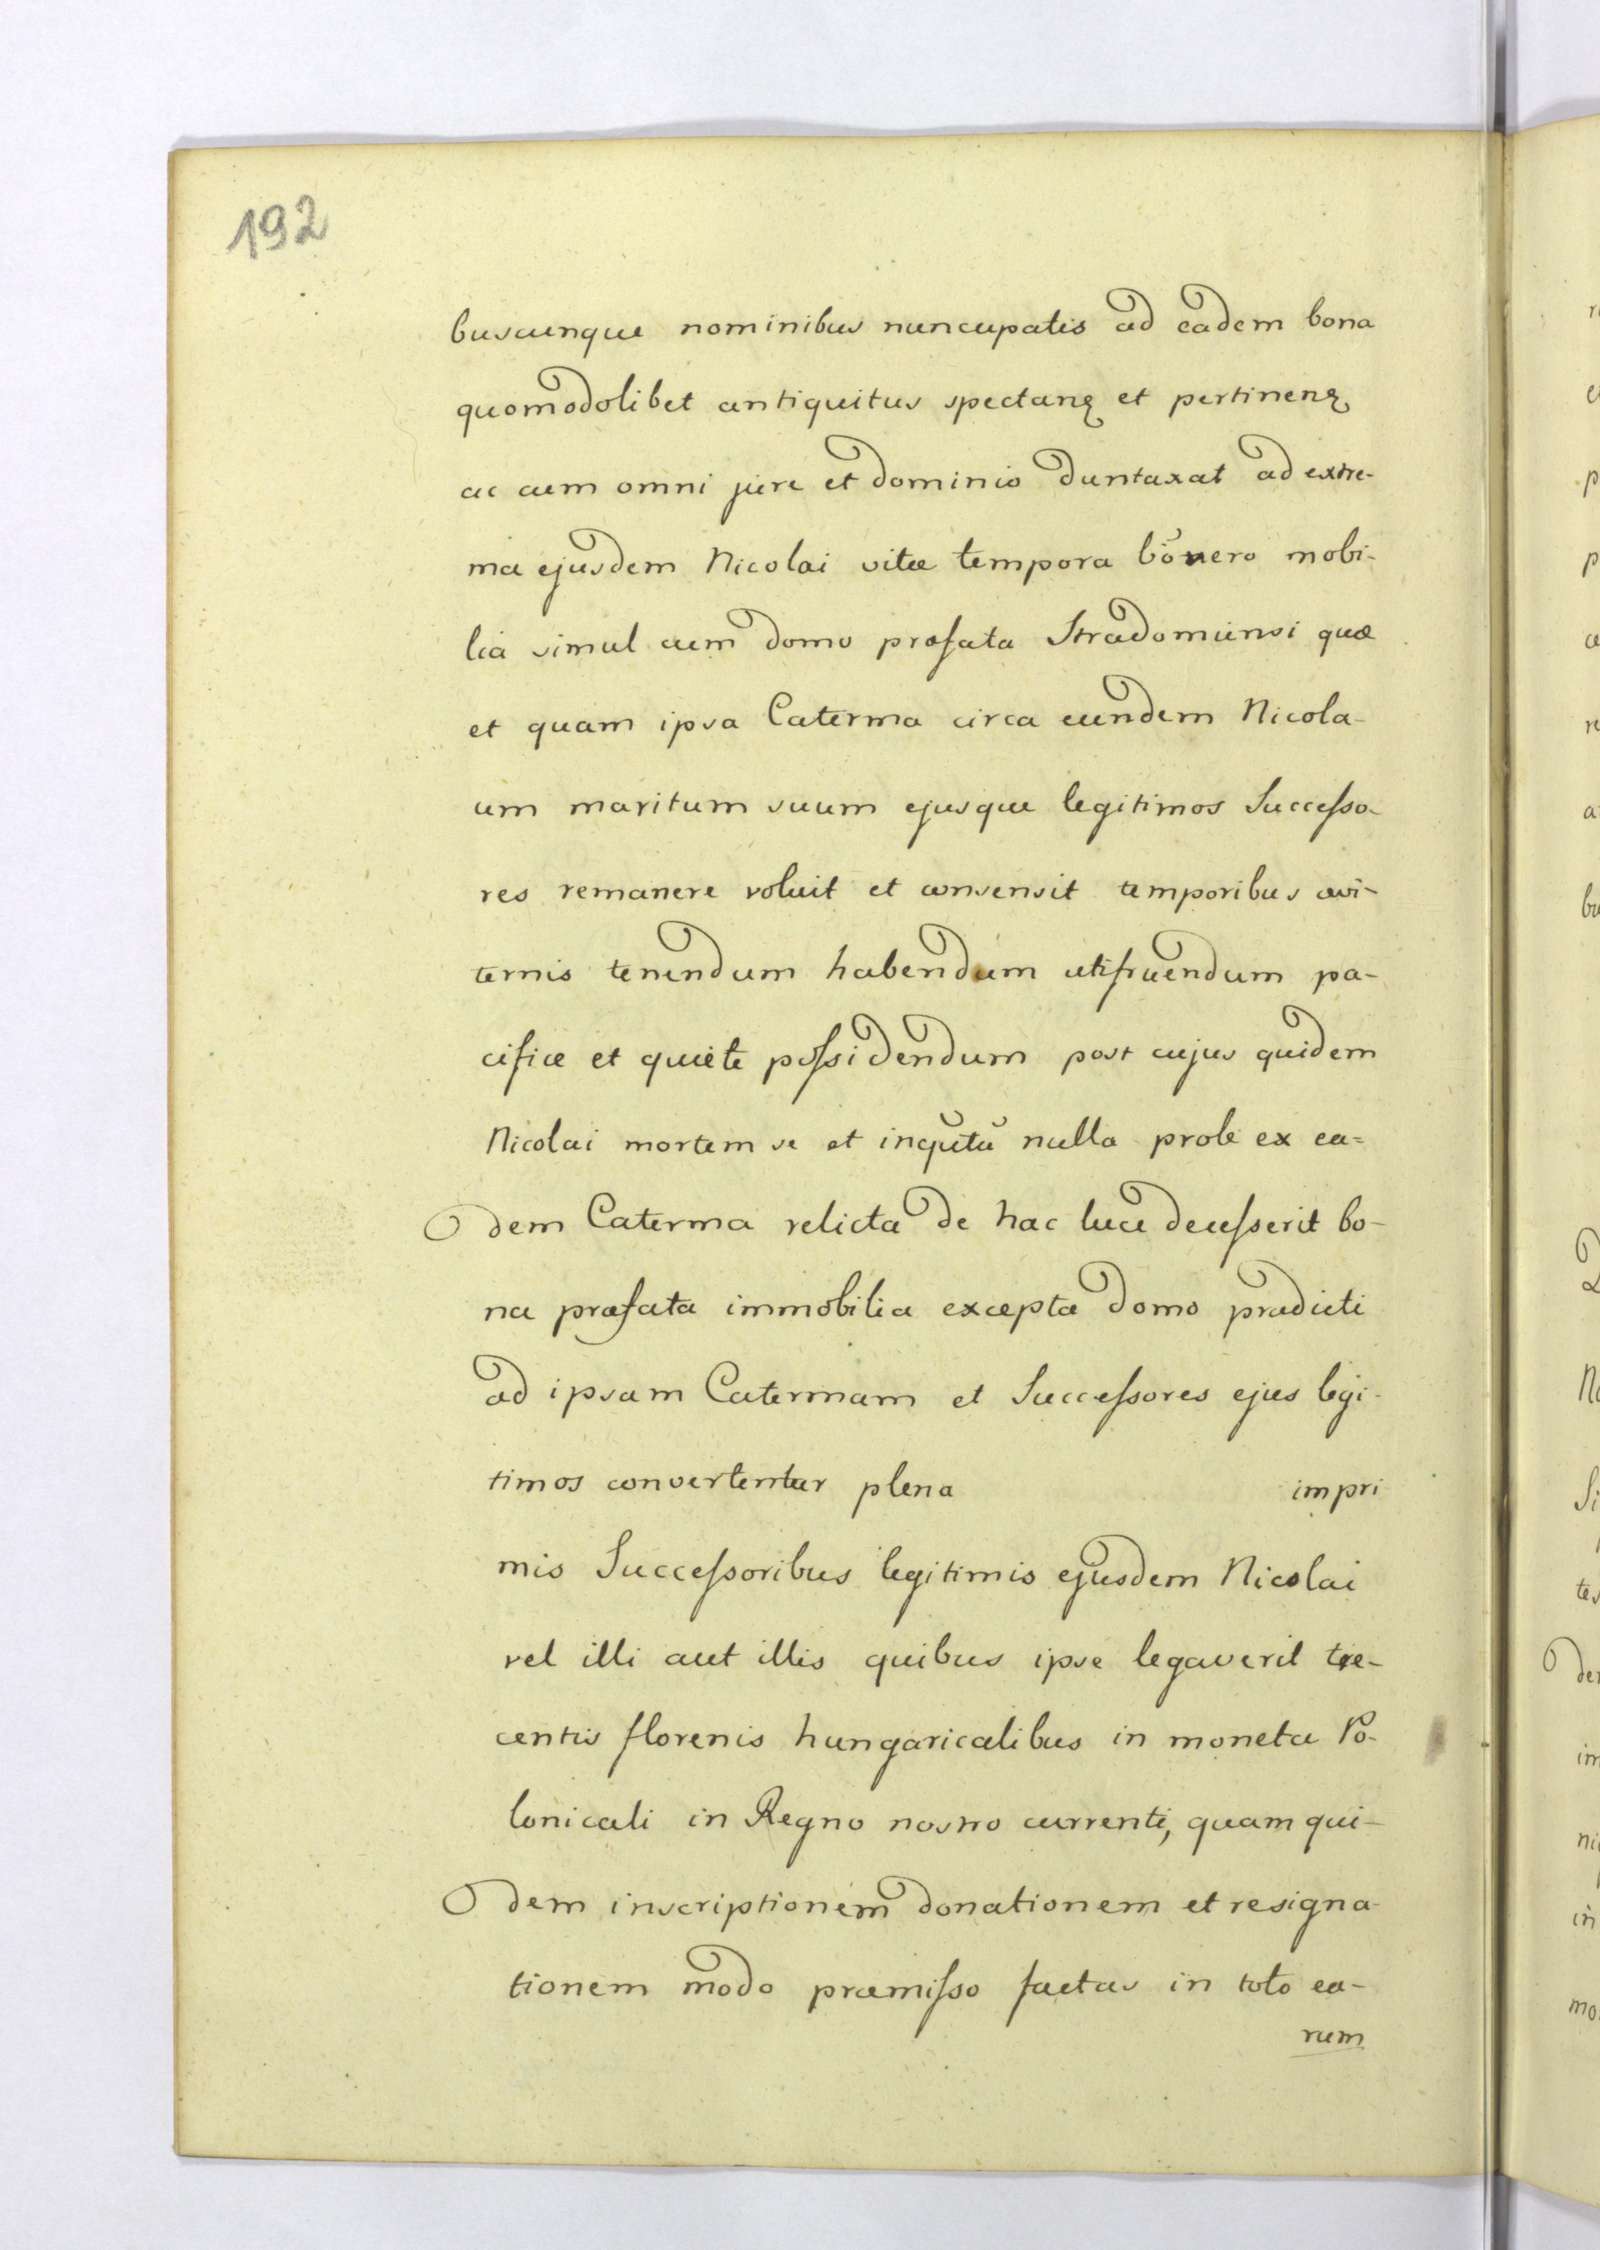 192
buscunque nominibus nuncupatis ad eadem bona
quomodolibet antiquitus spectanꝫ et pertinenꝫ
ac cum omni jure et dominio duntaxat ad extre-
ma ejusdem Nicolai vitæ tempora bo vero mobi-
lia simul cum domo præfata Stradomiensi quæ
et quam ipsa Caterina circa eundem Nicola-
um maritum suum ejusque legitimos Successo-
res remanere voluit et consensit temporibusævi-
ternis tenendum habendum utifruendum pa-
cifice et quiete possidendum post cujus quidem
Nicolai mortem se et nulla prole ex ea=
dem Caterina relicta de hac luce decesserit bo-
na præfata immobilia excepta domo prædicti
ad ipsam Caterinam et Successores ejus legi-
timos convertentur plena impri
mis Successoribus legitimis ejusdem Nicolai
vel illi aut illis quibus ipse legaverit tre-
centis florenis hungaricalibus in moneta Po-
lonicali in Regno nostro currenti, quam qui-
dem inscriptionem donationem et resigna-
tionem modo præmisso factas in toto ea-
rum